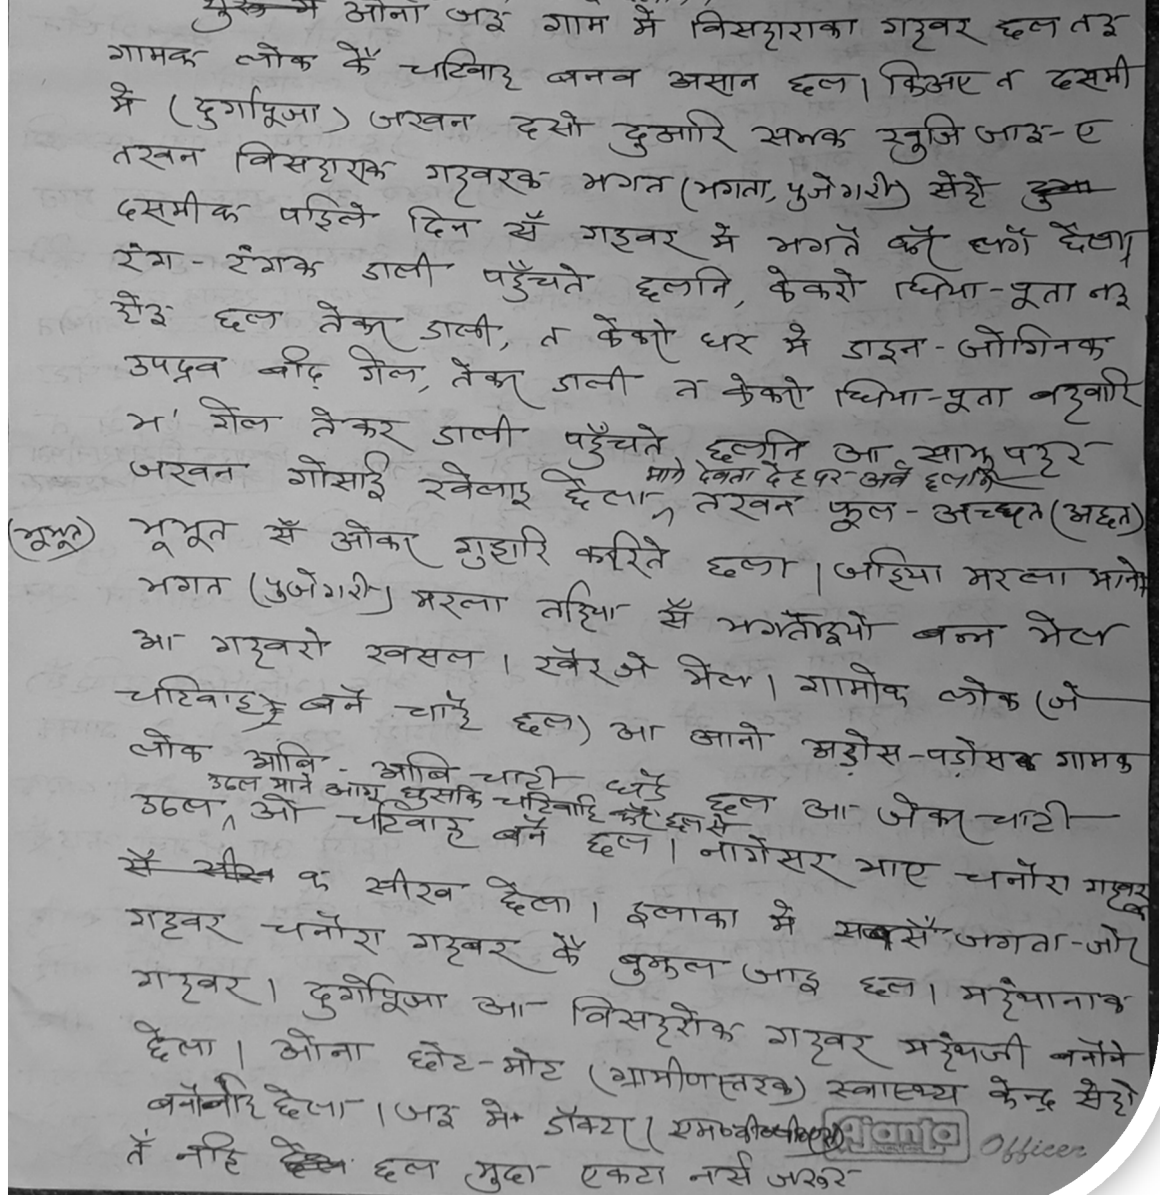 ओना जइ गाम मे विसहाराका गहवर छल तइ
गामक लोक कैँ चटिवाह बनब असान छल। किअए त दसमी
मे (दुर्गापूजा) जखन दसो दुआरि सभक खुजि जाइ-ए
तखन विसहाराक गहवरक भगत (भगता, पुजेगरी) सेहो
दसमीक पहिले दिन सँ गहवर मे भगतै करै लगै छेला।
रंग-रंगक डाली पहुँचते छलनि, केकरो धिया-पूता नइ
होइ छल तेकर डाली, त केकरो घर मे डाइन-जोगिनक
उपद्रव बढ़ि गेल, तेकर डाली त केकरो धिया-पूता बहवारि
भ' गेल तेकर डाली पहुँचते छलनि आ साझू पहर
माने देवता देह पर अबै छलनि
जखन गोसाइ खेलाइ छेला ^ तखन फूल-अच्छत (अछत)
(भूभूत) भूभूत सँ ओकर गुहारि करिते छला। जहिया मरला माने
भगत (पुजेगरी) मरला तहिया सँ भगतैइयो बन्न भेल
आ गहवरो खसल। खैर जे भेल। गामोक लोक (जे
चटिवाह बनै चाहै छल) आ आनो अड़ोस-पड़ोसक गामक
लोक आबि-आबि चाटी धड़ै छल आ जेकर चाटी
उठल माने आगू घुसकि चटिवाहि करै छल से
उठल ^ ओ चटिवाह बनै छल। नागेसर भाए चनौरा गहवर
क सीख छेला। इलाका मे सबसँ जगता-जोर
गहवर चनौरा गहवर कैँ बुझल जाइ छल। महंथानाक
गहवर। दुर्गापूजा आ विसहरोक गहवर महंथजी बनौने
छेला। ओना छोट-मोट (ग्रामीणस्तरक) स्वास्थ्य केन्द्र सेहो
बनौने छेला। जइ मे डॉक्टर (एम०बी०बी०एस)
तँ नहि छल मुदा एकटा नर्स जरूर
Ajanta Officer